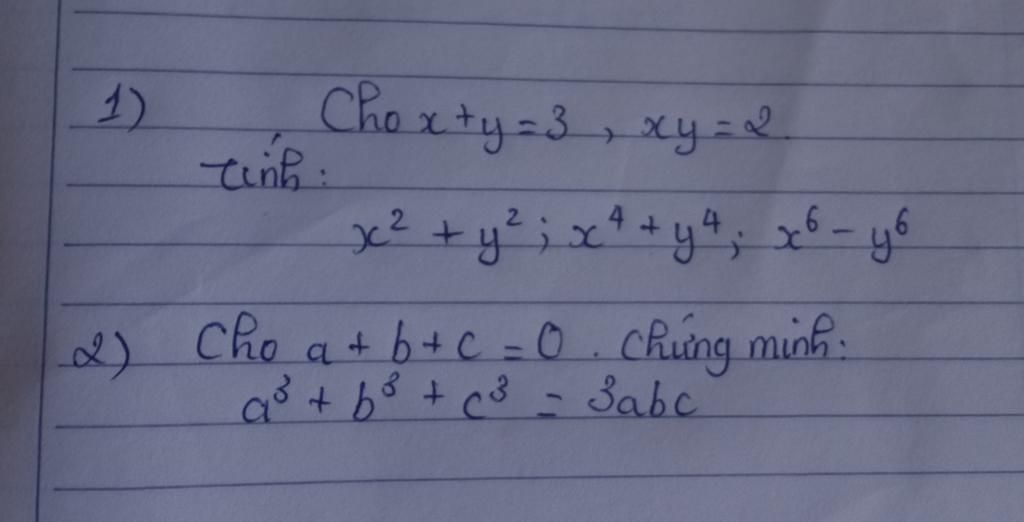 1) Cho x + y = 3 , xy = 2.
Tính:
x² + y² ; x⁴ + y⁴ ; x⁶ - y⁶
2) Cho a + b + c = 0 . Chứng minh:
a³ + b³ + c³ = 3abc